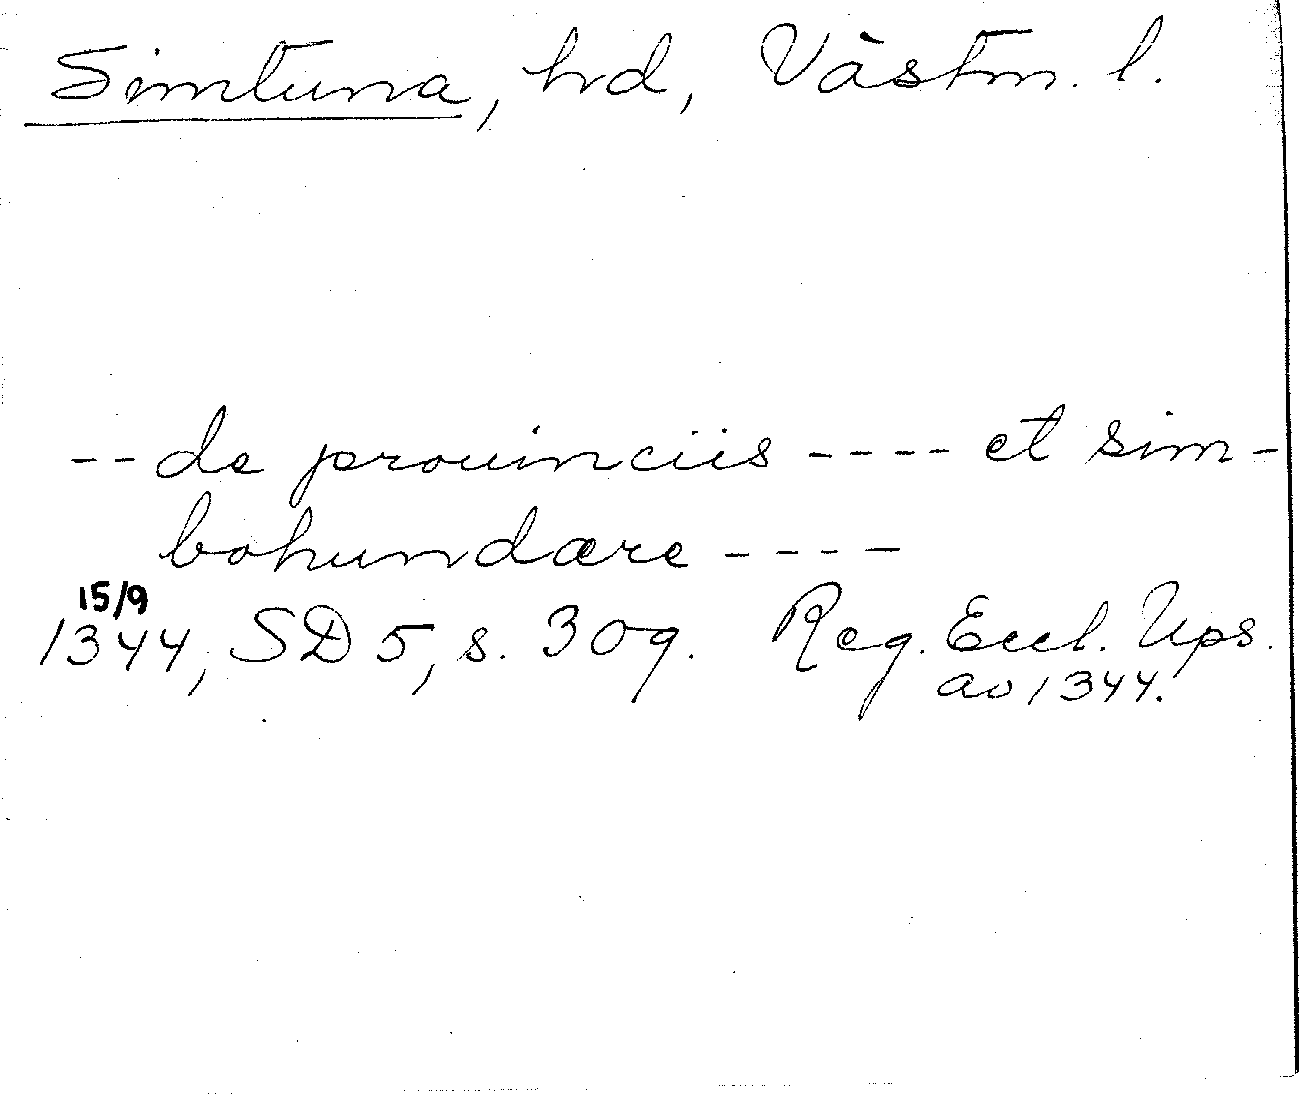 Simtuna, hd, Västm. l.
-- de prouinciis ---- et sim-
bohundære ----
15/9
1344, SD 5, s. 309. Reg. Eccl. Ups.
av 1344.